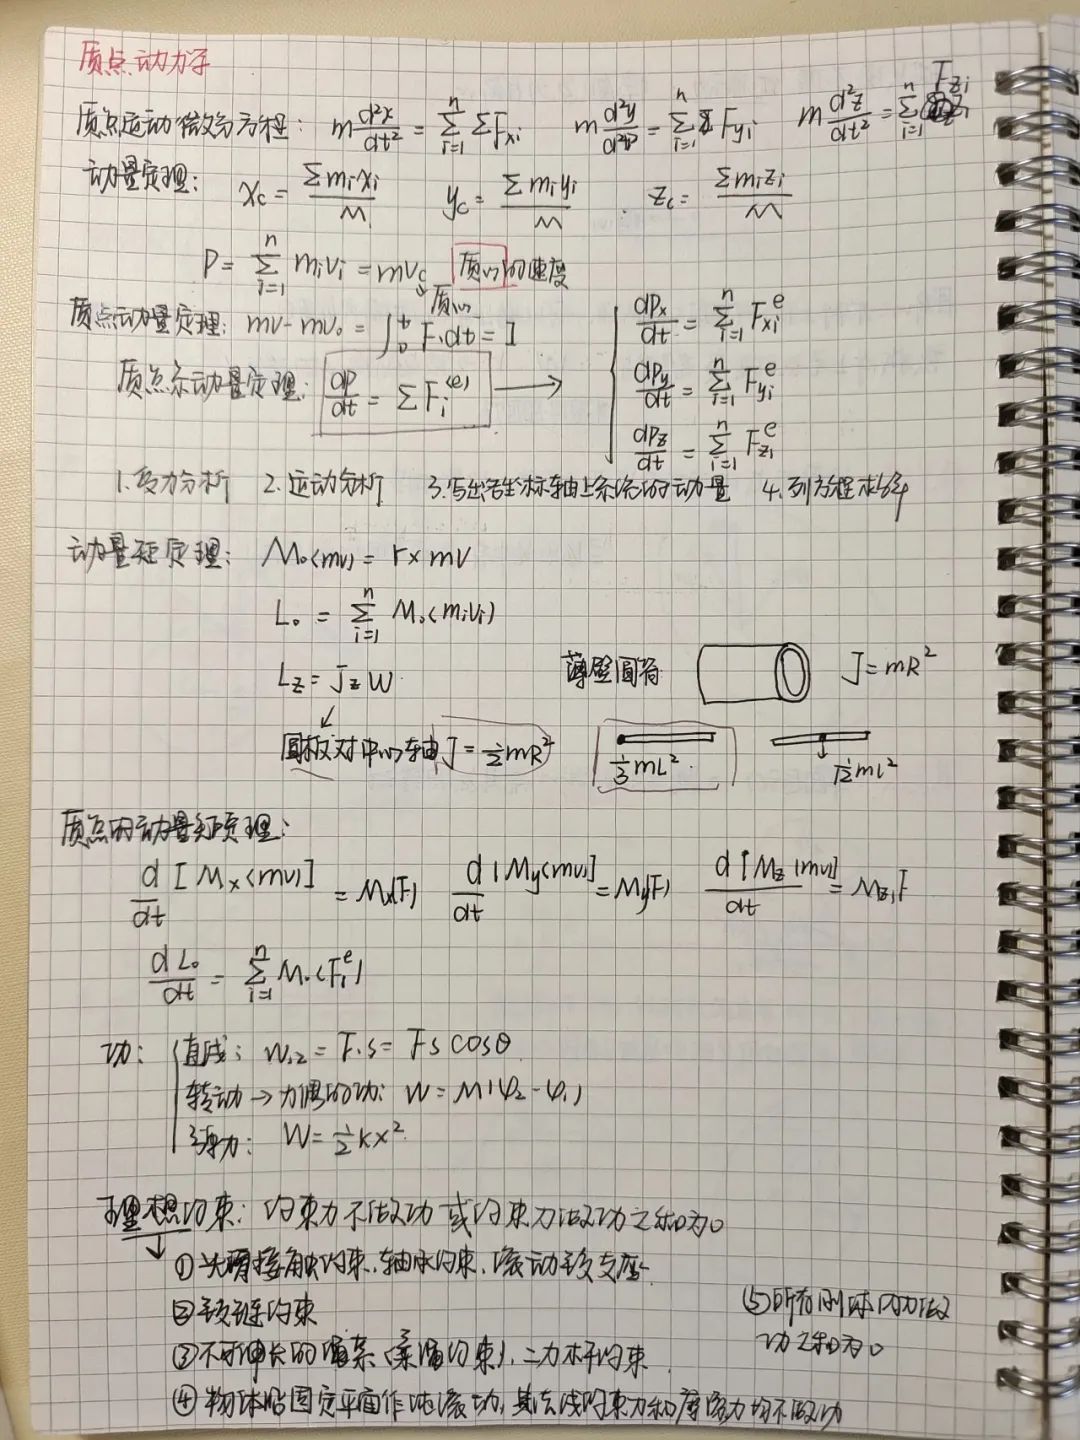 质点动力学
质点运动微分方程: m d²x/dt² = Σ_{i=1}^{n} ΣF_{xi}  m d²y/d²t² = Σ_{i=1}^{n} F_{yi}  m d²z/dt² = Σ_{i=1}^{n} F_{zi}
动量定理: x_c = Σm_i x_i / M  y_c = Σm_i y_i / M  z_c = Σm_i z_i / M
P = Σ_{i=1}^{n} m_i v_i = m v_c 质心的速度
质心
质点动量定理: mv - mv₀ = ∫₀^t F·dt = I
质点系动量定理: dP/dt = ΣF_i^{(e)} → { dP_x/dt = Σ_{i=1}^{n} F_{xi}^e
dP_y/dt = Σ_{i=1}^{n} F_{yi}^e
dP_z/dt = Σ_{i=1}^{n} F_{zi}^e
1.受力分析 2.运动分析 3.写出各坐标轴上系统的动量 4.列方程求解
动量矩定理: M₀(mv) = r×mv
L₀ = Σ_{i=1}^{n} M₀(m_i v_i)
L_z = J_z W
薄壁圆筒 J = mR²
圆板对中心轴 J = ½mR² ⅓mL² 1/12 ml²
质点的动量矩定理:
d/dt [M_x(mv)] = M_x(F)  d/dt [M_y(mv)] = M_y(F)  d[M_z(mv)]/dt = M_z,F
dL₀/dt = Σ_{i=1}^{n} M₀(F_i^e)
功: { 直线: W₁₂ = F·s = Fs cosθ
转动→力偶的功: W = M(φ₂-φ₁)
弹力: W = ½kx²
理想约束: 约束力不做功或约束力做功之和为0
①光滑接触约束,轴承约束,滚动铰支座
②铰链约束
③不可伸长的绳索(柔绳约束),二力杆约束
④物体沿固定平面作纯滚动,其法线约束力和摩擦力均不做功
(5)所有刚体内力做
功之和为0